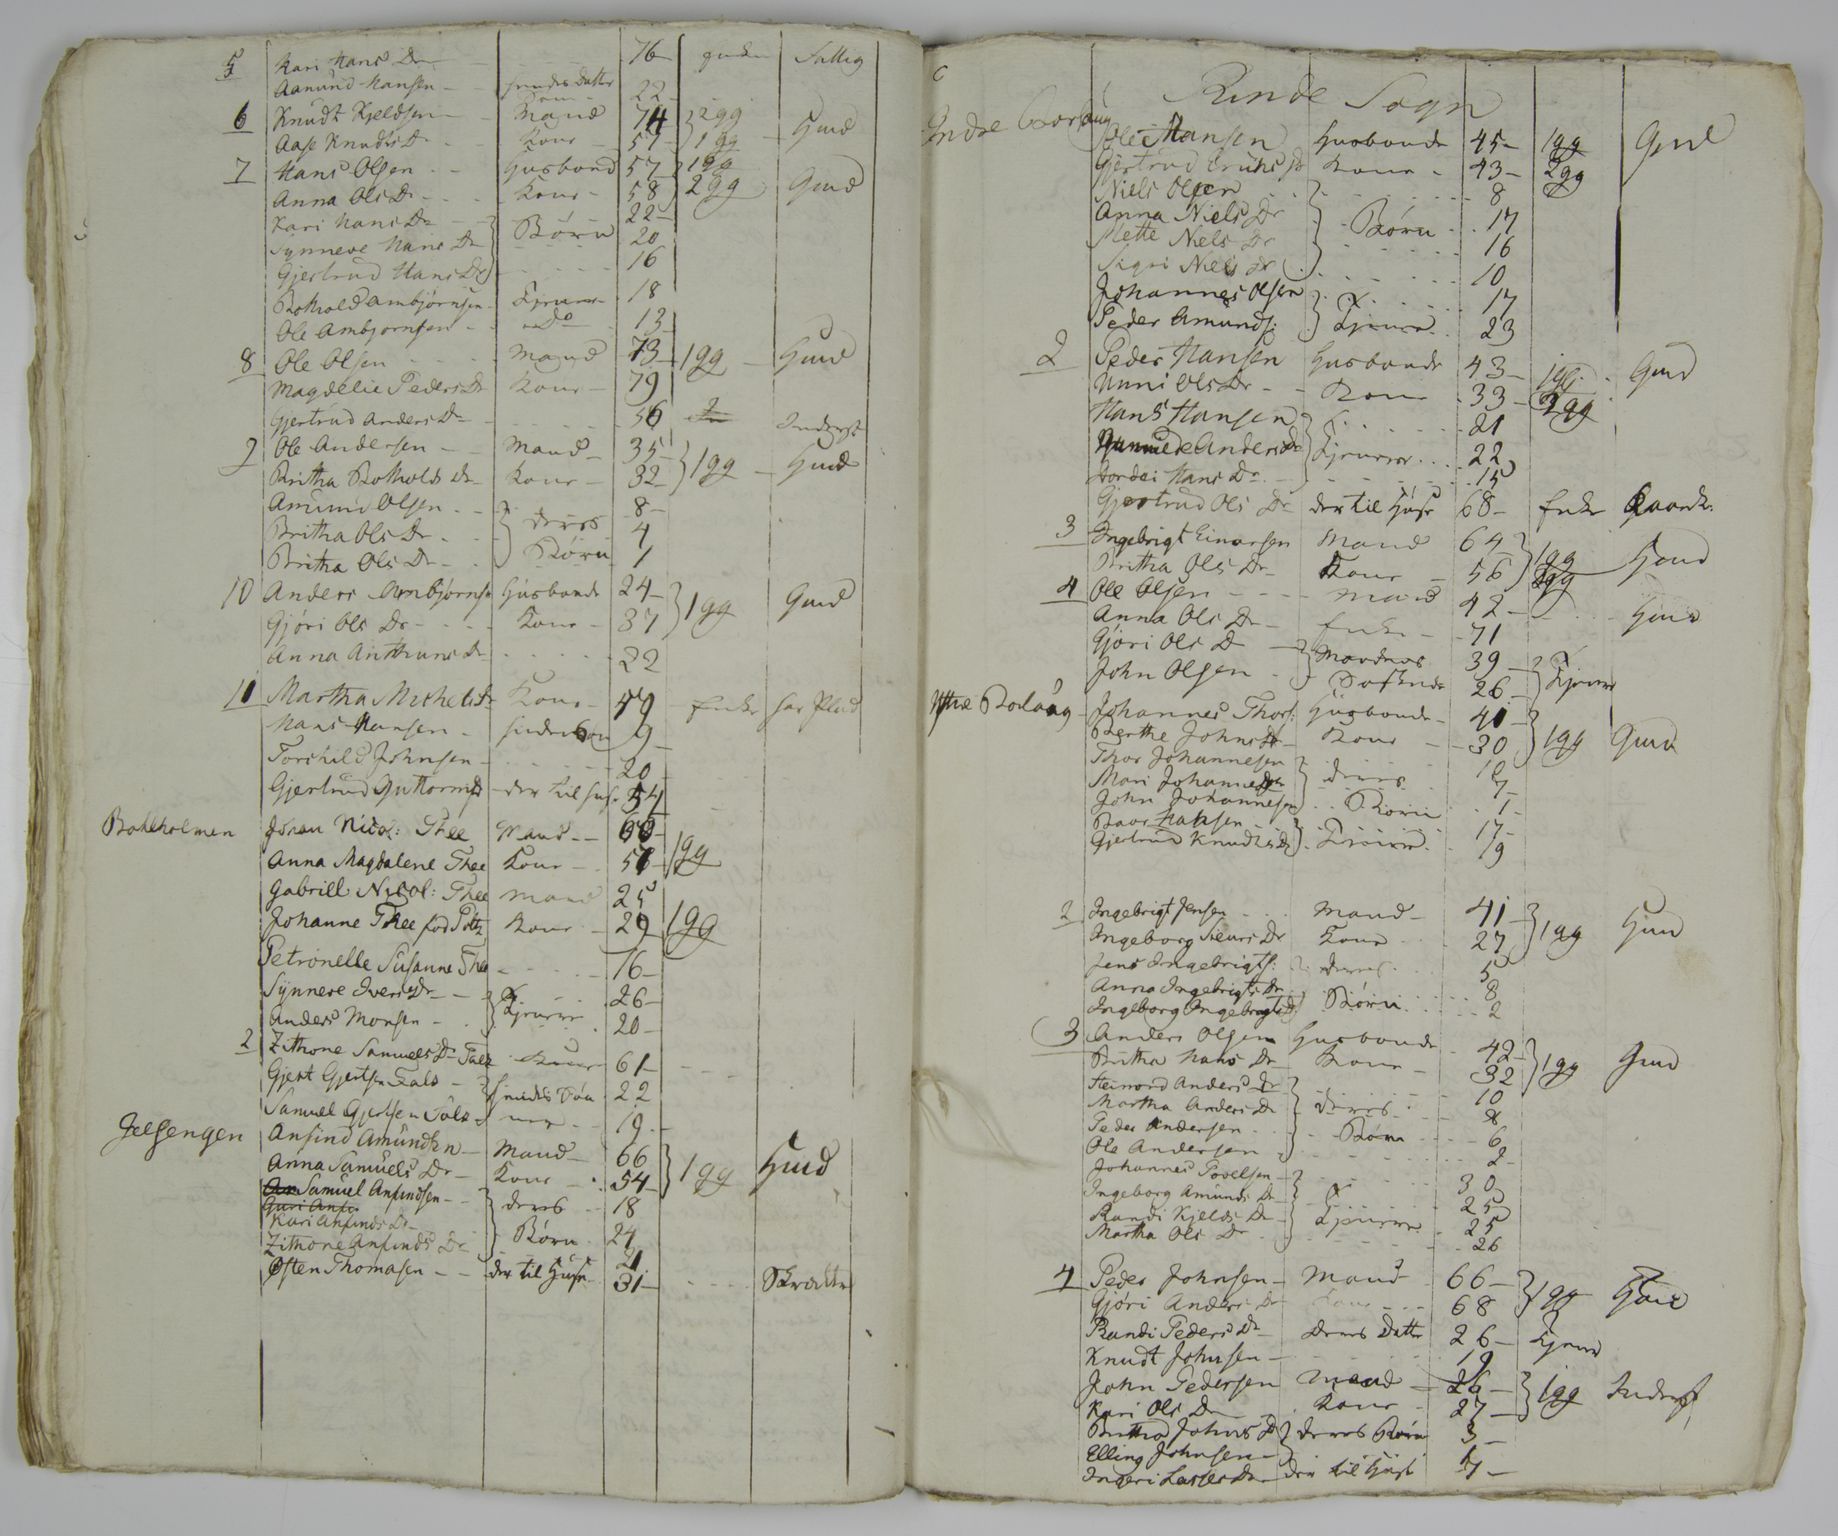 5 Kari Hans Dr 76 Enke Fattig
Aamund Hansen hendes datter 22
6 Knudt Kjeldsen Mand 74 2gg Huusmd
Aase Knuds Dr Kone 51 1gg
7 Hans Olsen Husbond 57 1gg
Anna Ols Dr Kone 58 2gg Gmd
Kari Hans Dr 22
Synneve Hans Dr Børn 20
Gjertrud Hans Dr 16
Botholdambjørnsen Tjenere 18
Ole Ambjornsen Do 13
8 Ole Olsen Mand 73 1gg Hmd
Magdelie Peders Dr Kone 79
Gjertrud Anders Dr 56 Inderst
9 Ole Andersen Mand 35 1gg Hmd
Britha Botholds Dr Kone 32
Amund Olsen 8
Britha Ols Dr deres 4
Britha Ols Dr Børn 1
10 Anders Ambjørnsn Husbonde 24 1gg Gmd
Gjøri Ols Dr Kone 37
Anna Anthuns Dr 22
11 Martha Michels Dr Kone 49 Enke har Plads
Hans Hansen hendes Søn 9
Torchild Johnsen 20
Gjertrud Guttorms Dr der til huse 54
Bahlholmen Joran Nicol: Thee Mand 60
Anna Magdalene Thee Kone 51 1gg
Gabriell Nicol: Thee Mand 25
Johanne Thee fød Pøtz Kone 29 1gg
Petronelle Susanne Thee 16
Synneve Ivers Dr Tjenere 26
Anders Monsen 20
2 Zithone Samuels Dr Falck Kone 61
Gjert Gjertsen Falck hendes Søn 22
Samuel Gjertsen Falck 19
Jelsengen Ansind Amundsn Mand 66 1gg Hmd
Anna Samuels Dr Kone 54
Samuel Anfindsen deres 18
Guri Anf
Kari Anfinds Dr Børn 24
Zithone Anfinds Dr 21
Østen Thomasen der til Huse 31 Skrædder
6 Rinde Sogn
Indre Borlaug Ole Hansen Husbonde 45 1gg Gmd
Gjertrud Eriks Dr Kone 43 2gg
Niels Olsen 8
Anna Niels Dr Børn 17
Mette Niels Dr 16
Sigri Niels Dr 10
Johannes Olsen 17
Peder Amunds: Tjenere 23
2 Peder Hansen Husbonde 43 1gg Gmd
Unni Ols Dr Kone 33 2gg
Hans Hansen 21
Anders Dr Tjenere 22
Hans Dr 15
Gjertrud Ols Dr der til Huse 68 Enke
3 Ingebrigt Einarsen Mand 64 1gg Hmd
Britha Ols Dr Kone 56 2gg
4 Ole Olsen Mand 42 Hmd
Anna Ols Dr Enke 71
Gjøri Ols Dr Mandens 39 Tjener
John Olsen Søskende 26
Ytre Borlaug Johannes Thors: Husbonde 41 1gg Gmd
Berthe Johns Dr Kone 30
Thor Johannesen deres 10
Mari Johannes Dr 7
John Johannesen Børn 1
Baar Hansen 17
Gjertrud Knuds Dr Tjenere 19
2 Ingebrigt Jensen Mand 41 1gg Hmd
Ingeborg Siurs Dr Kone 27
Jens Ingebrigts: deres 5
Anna Ingebrigts Dr 8
Ingeborg Ingebrigts Dr Børn 2
3 Anders Olsen Husbonde 42 1gg Gmd
Britha Hans Dr Kone 32
Anders Dr 10
Martha Anders Dr deres 8
Peder Andersen Børn 6
Ole Andersen 2
Johannes Povelsen 30
Ingeborg Amunds Dr 25
Randi Kjelds Dr Tjenere 25
Martha Ols Dr 26
4 Peder Johnsen Mand 66 1gg Hmd
Gjøri Anders Dr Kone 68
Randi Peders Dr deres Datter 26 Tjener
Knudt Johnsen 19
John Pedersen Mand 26 1gg Inderst
Kari Ols Dr Kone 27
Britha Johns Dr deres Børn 3
Elling Johnsen 1
Ingeri Lasses Dr der til Huse 7